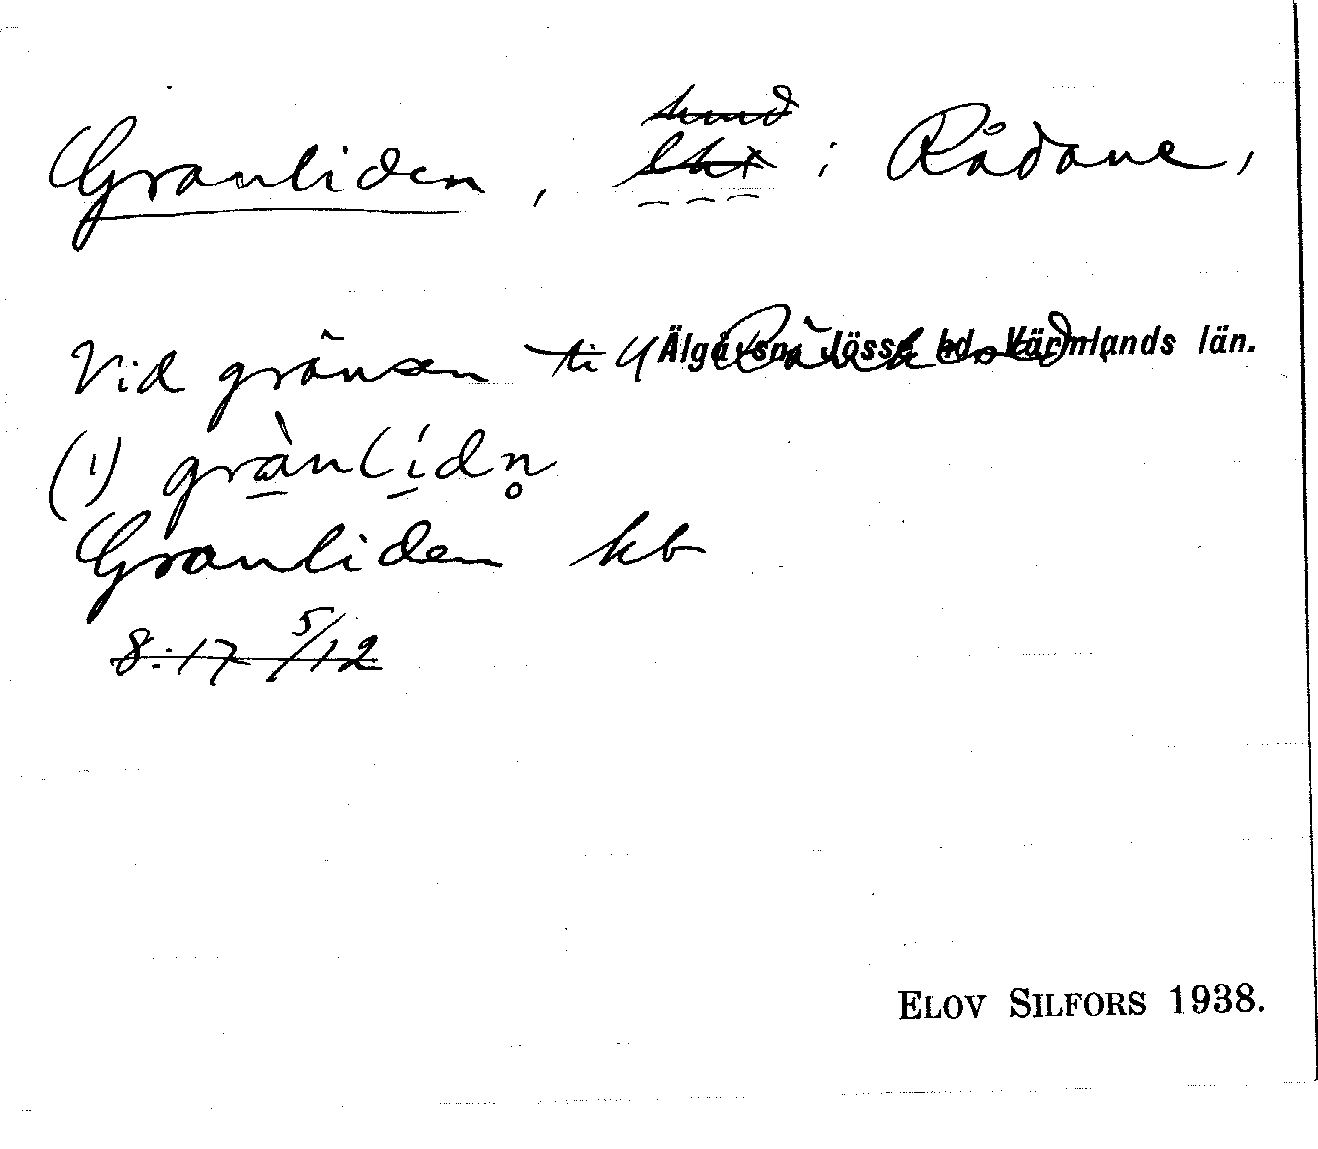 hmd
Granliden, lht i Rådane,
Älgå sn, Jösse hd, Värmlands län.
Vid gränsen till
(1) grànlídn̥
Granliden kb
8:17 5/12
ELOV SILFORS 1938.